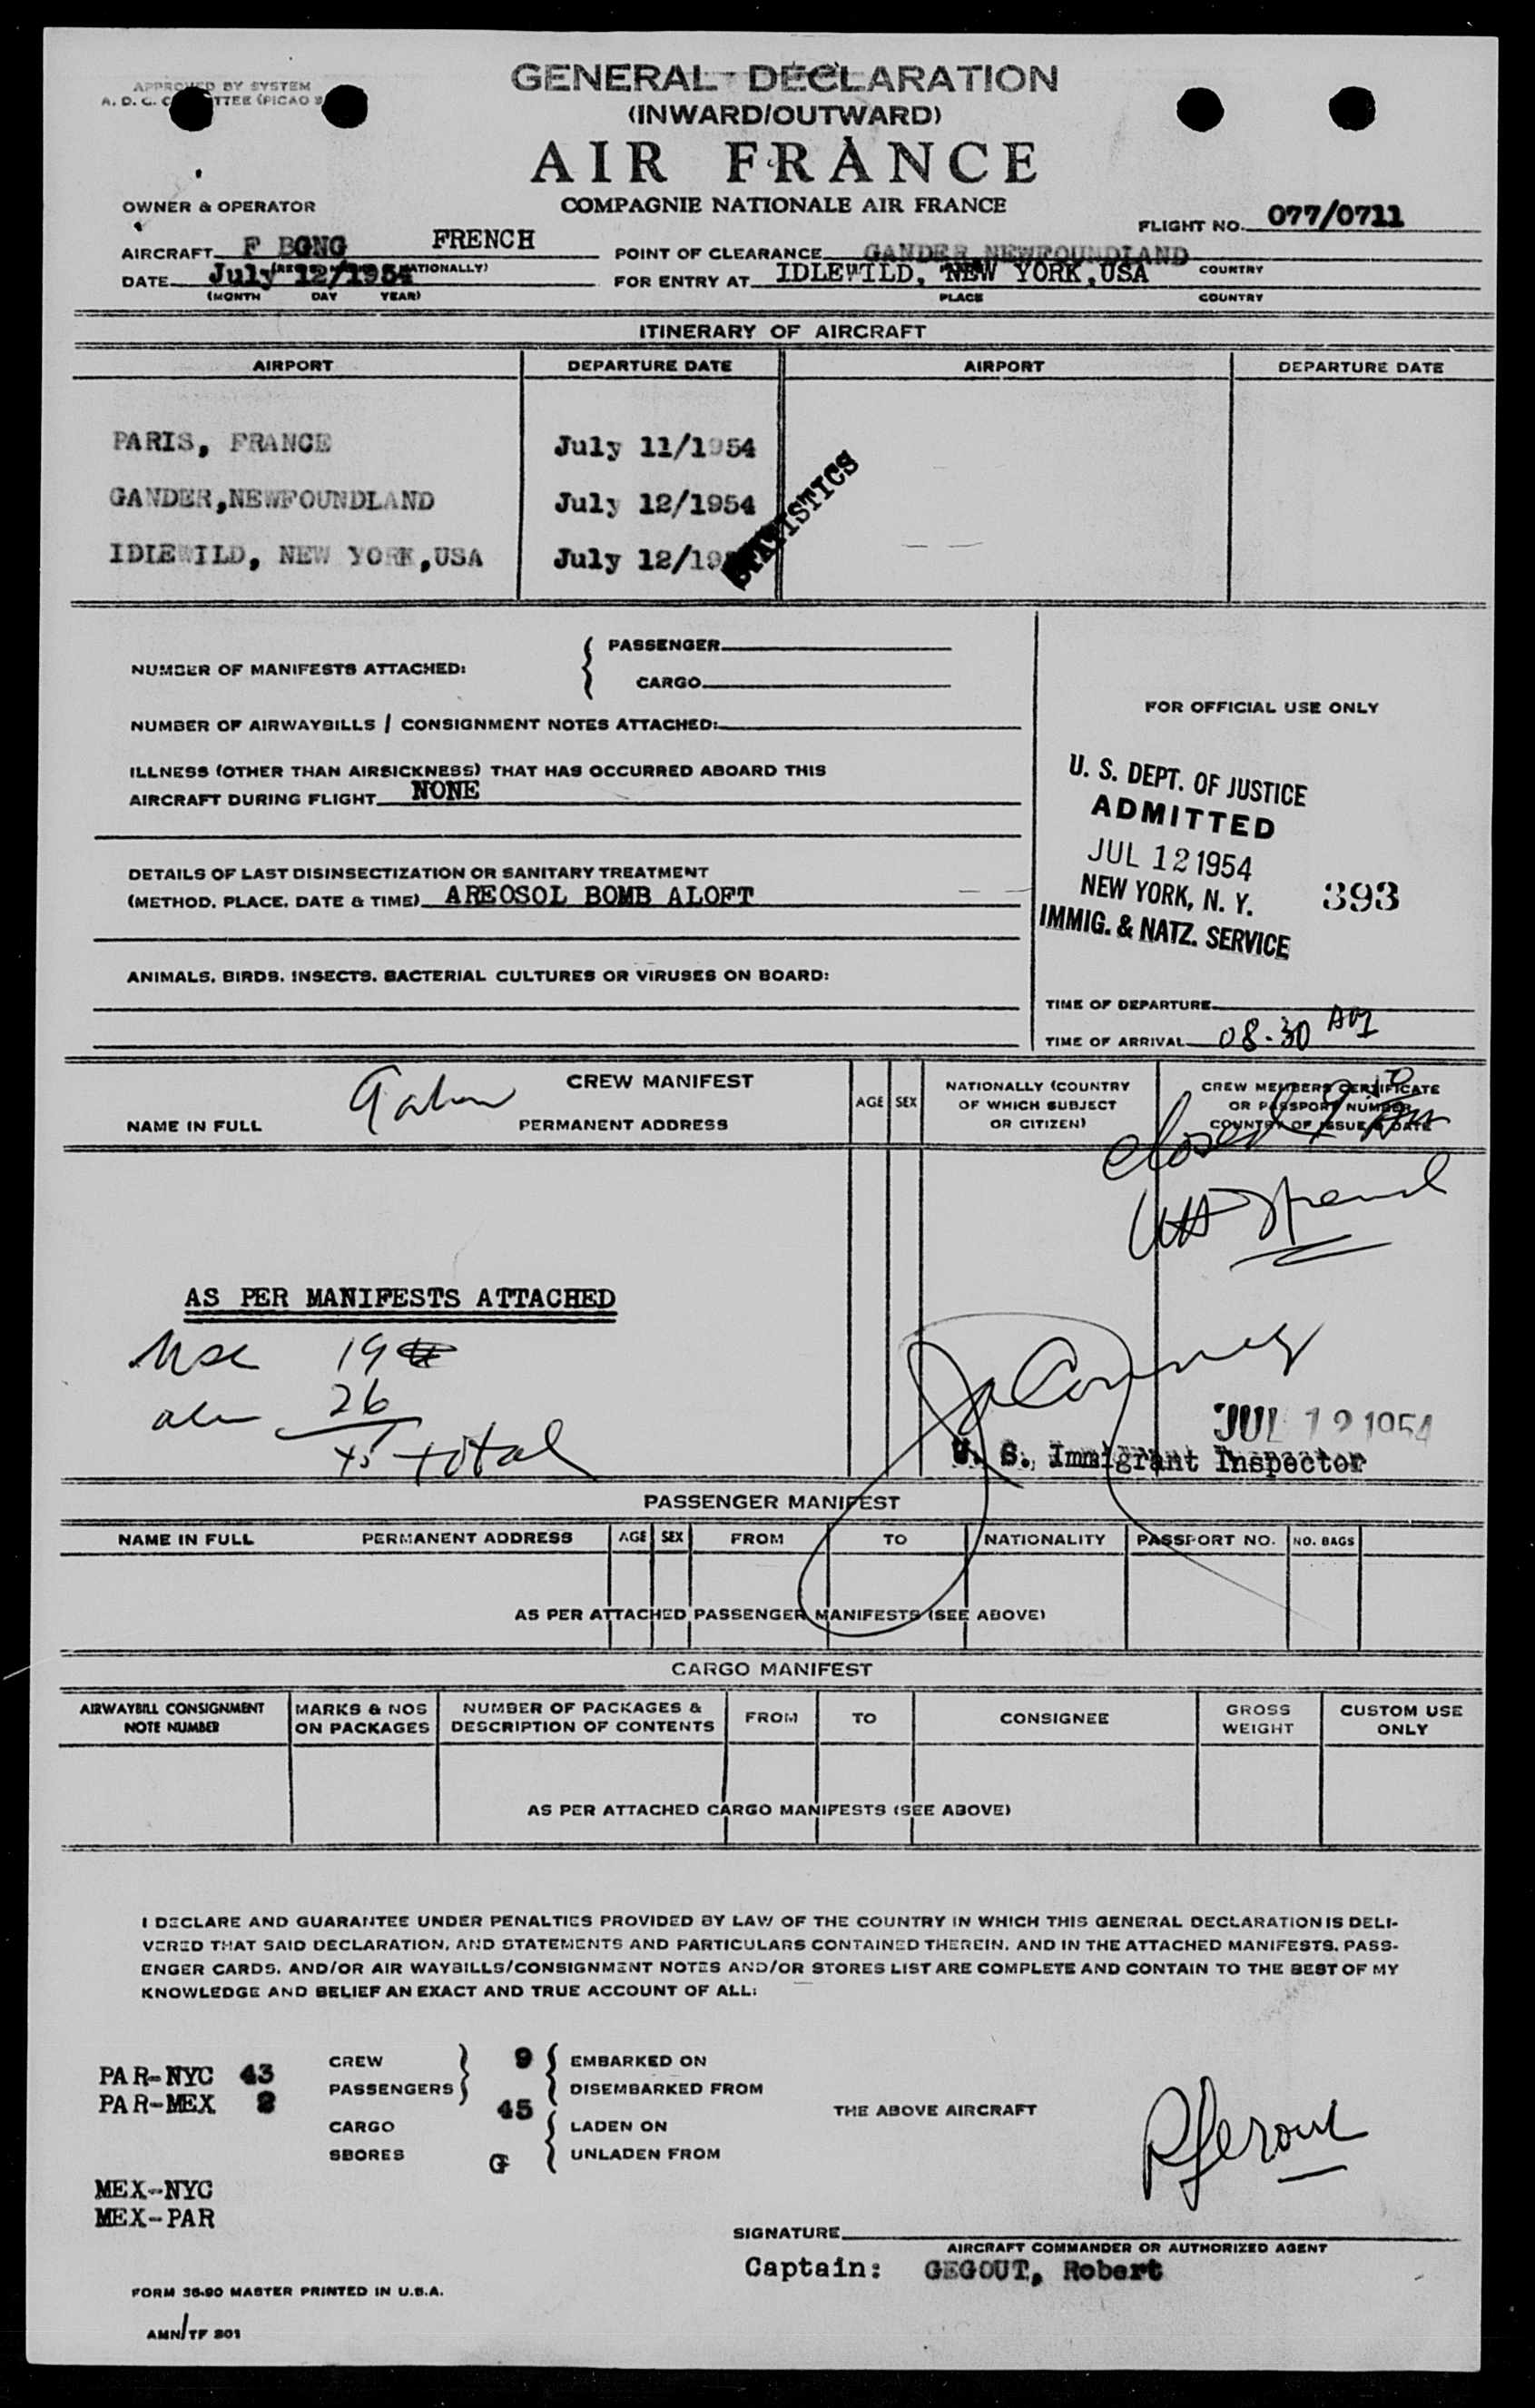 APPROVED BY SYSTEM
A. D. C. C TTEE (PICAO
GENERAL DECLARATION
(INWARD/OUTWARD)
AIR FRANCE
COMPAGNIE NATIONALE AIR FRANCE
OWNER & OPERATOR
FLIGHT NO. 077/0711
AIRCRAFT F BGNG FRENCH
POINT OF CLEARANCE GANDER NEWFOUNDLAND
DATE July 12/1954 NATIONALLY)
COUNTRY
(MONTH DAY YEAR)
FOR ENTRY AT IDLEWILD, NEW YORK, USA
PLACE COUNTRY
ITINERARY OF AIRCRAFT
AIRPORT DEPARTURE DATE AIRPORT DEPARTURE DATE
PARIS, FRANCE July 11/1954
GANDER,NEWFOUNDLAND July 12/1954
IDLEWILD, NEW YORK,USA July 12/19
STATISTICS
NUMBER OF MANIFESTS ATTACHED: { PASSENGER
CARGO
NUMBER OF AIRWAYBILLS / CONSIGNMENT NOTES ATTACHED:
ILLNESS (OTHER THAN AIRSICKNESS) THAT HAS OCCURRED ABOARD THIS
AIRCRAFT DURING FLIGHT NONE
DETAILS OF LAST DISINSECTIZATION OR SANITARY TREATMENT
(METHOD, PLACE, DATE & TIME) AREOSOL BOMB ALOFT
ANIMALS, BIRDS, INSECTS, BACTERIAL CULTURES OR VIRUSES ON BOARD:
FOR OFFICIAL USE ONLY
U. S. DEPT. OF JUSTICE
ADMITTED
JUL 12 1954
NEW YORK, N. Y. 393
IMMIG. & NATZ. SERVICE
TIME OF DEPARTURE
TIME OF ARRIVAL 08-30 AM
CREW MANIFEST
NAME IN FULL PERMANENT ADDRESS
AGE SEX
NATIONALLY (COUNTRY
OF WHICH SUBJECT
OR CITIZEN)
CREW MEMBERS CERTIFICATE
OR PASSPORT NUMBER
COUNTRY OF ISSUE & DATE
Closed
AS PER MANIFESTS ATTACHED
19
26
45 total
JUL 12 1954
U. S. Immigrant Inspector
PASSENGER MANIFEST
NAME IN FULL PERMANENT ADDRESS AGE SEX FROM TO NATIONALITY PASSPORT NO. NO. BAGS
AS PER ATTACHED PASSENGER MANIFESTS (SEE ABOVE)
CARGO MANIFEST
AIRWAYBILL CONSIGNMENT
NOTE NUMBER
MARKS & NOS
ON PACKAGES
NUMBER OF PACKAGES &
DESCRIPTION OF CONTENTS
FROM TO CONSIGNEE
GROSS
WEIGHT
CUSTOM USE
ONLY
AS PER ATTACHED CARGO MANIFESTS (SEE ABOVE)
I DECLARE AND GUARANTEE UNDER PENALTIES PROVIDED BY LAW OF THE COUNTRY IN WHICH THIS GENERAL DECLARATION IS DELI-
VERED THAT SAID DECLARATION, AND STATEMENTS AND PARTICULARS CONTAINED THEREIN. AND IN THE ATTACHED MANIFESTS. PASS-
ENGER CARDS. AND/OR AIR WAYBILLS/CONSIGNMENT NOTES AND/OR STORES LIST ARE COMPLETE AND CONTAIN TO THE BEST OF MY
KNOWLEDGE AND BELIEF AN EXACT AND TRUE ACCOUNT OF ALL:
PAR-NYC 43
PAR-MEX 2
CREW } 9 { EMBARKED ON
PASSENGERS } 45 { DISEMBARKED FROM
CARGO { LADEN ON
SBORES G { UNLADEN FROM
THE ABOVE AIRCRAFT
MEX-NYC
MEX-PAR
SIGNATURE
AIRCRAFT COMMANDER OR AUTHORIZED AGENT
Captain: GEGOUT, Robert
FORM 36-90 MASTER PRINTED IN U.S.A.
AMN/TF 201